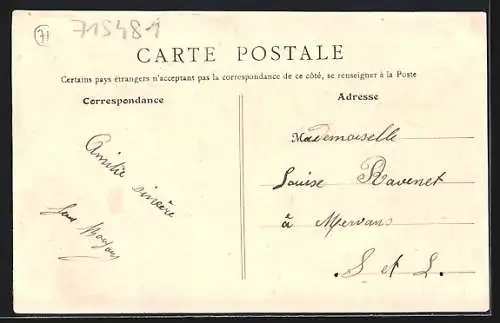 71
715481
CARTE POSTALE
Certains pays étrangers n'acceptant pas la correspondance de ce côté, se renseigner à la Poste
Correspondance
Amitié sincère
Adresse
Mademoiselle
Louise Ravenet
à Mervans
S et L.